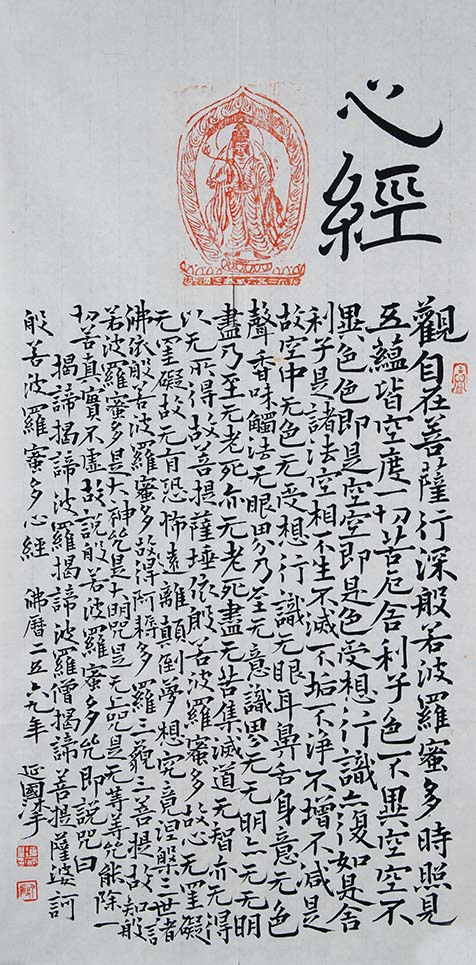 心經
觀自在菩薩行深般若波羅蜜多時照見
五蘊皆空度一切苦厄舍利子色不異空空不
異色色即是空空即是色受想行識亦復如是舍
利子是諸法空相不生不滅不垢不淨不增不減是
故空中无色无受想行識无眼耳鼻舌身意无色
聲香味觸法无眼界乃至无意識界无无明亦无无明
盡乃至无老死亦无老死盡无苦集滅道无智亦无得
以无所得故菩提薩埵依般若波羅蜜多故心无罣礙
无罣礙故无有恐怖遠離顛倒夢想究竟涅槃三世諸
佛依般若波羅蜜多故得阿耨多羅三藐三菩提故知般
若波羅蜜多是大神咒是大明咒是无上咒是无等等咒能除一
切苦真實不虛故說般若波羅蜜多咒即說咒曰
揭諦揭諦波羅揭諦波羅僧揭諦菩提薩婆訶
般若波羅蜜多心經 佛曆二五六九年 延國